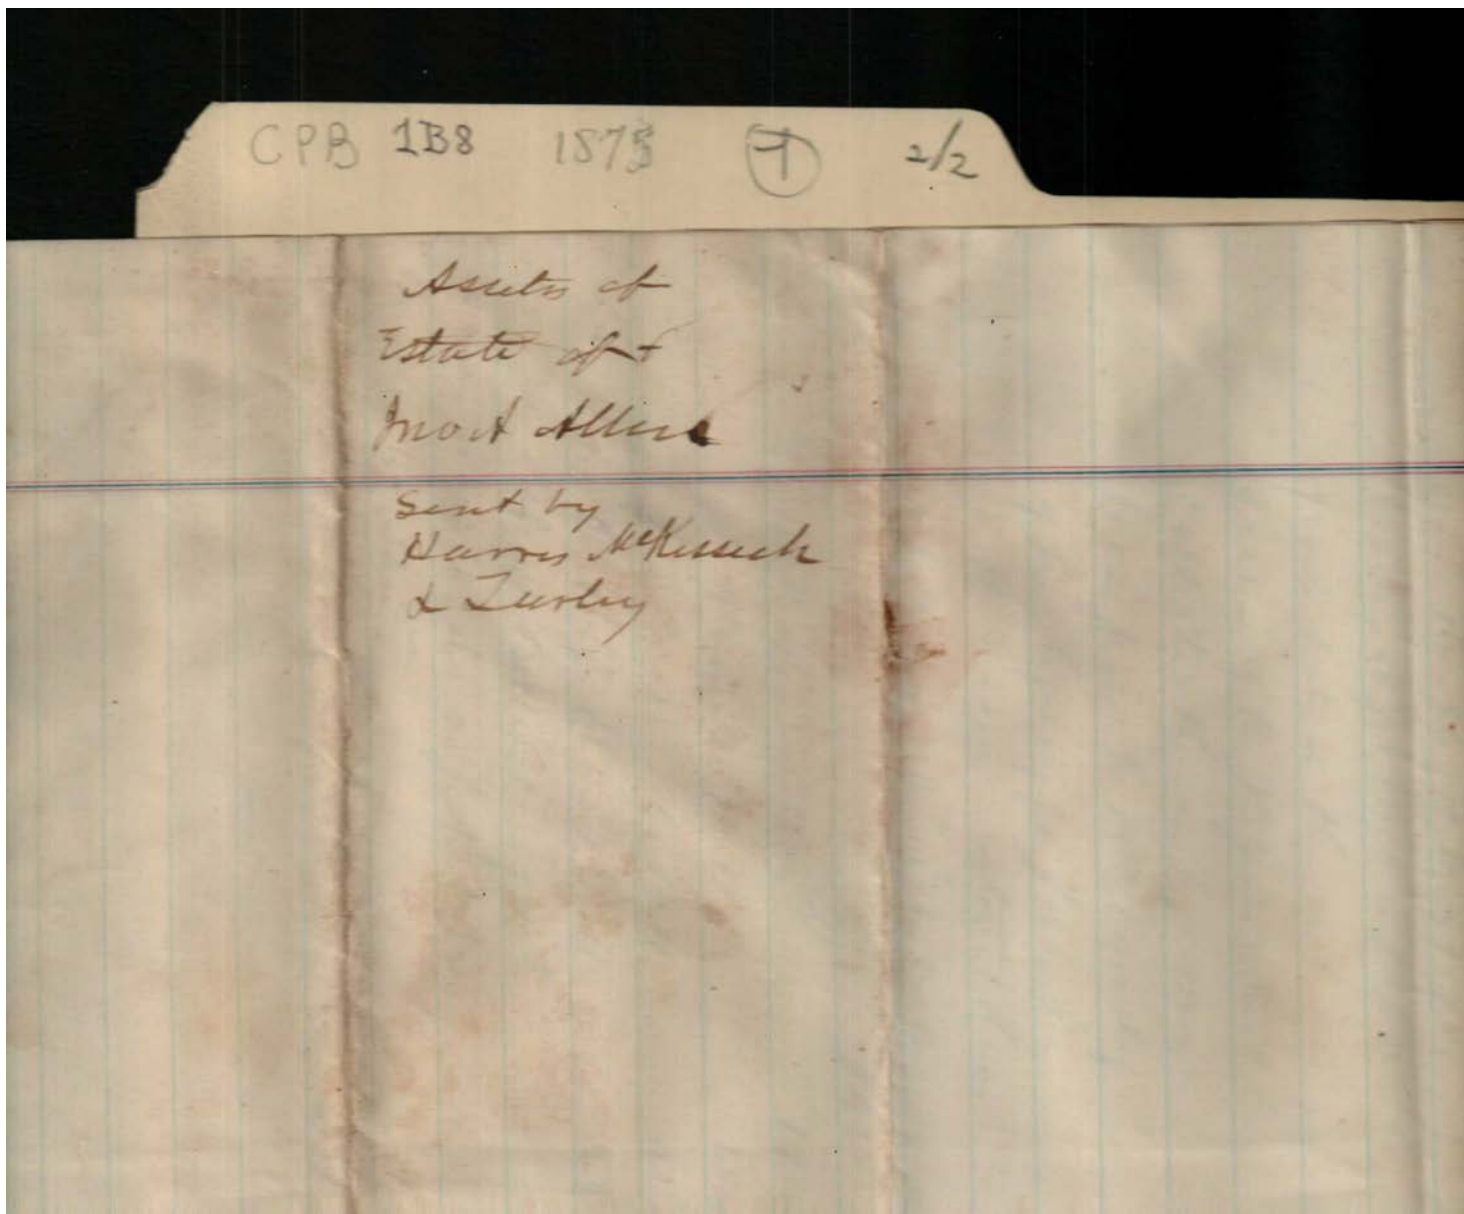 CPB 1B8 1875 T 2/2
Assets of
Estate of
Jno A Allen
Sent by
Harris McKissick
& Turley